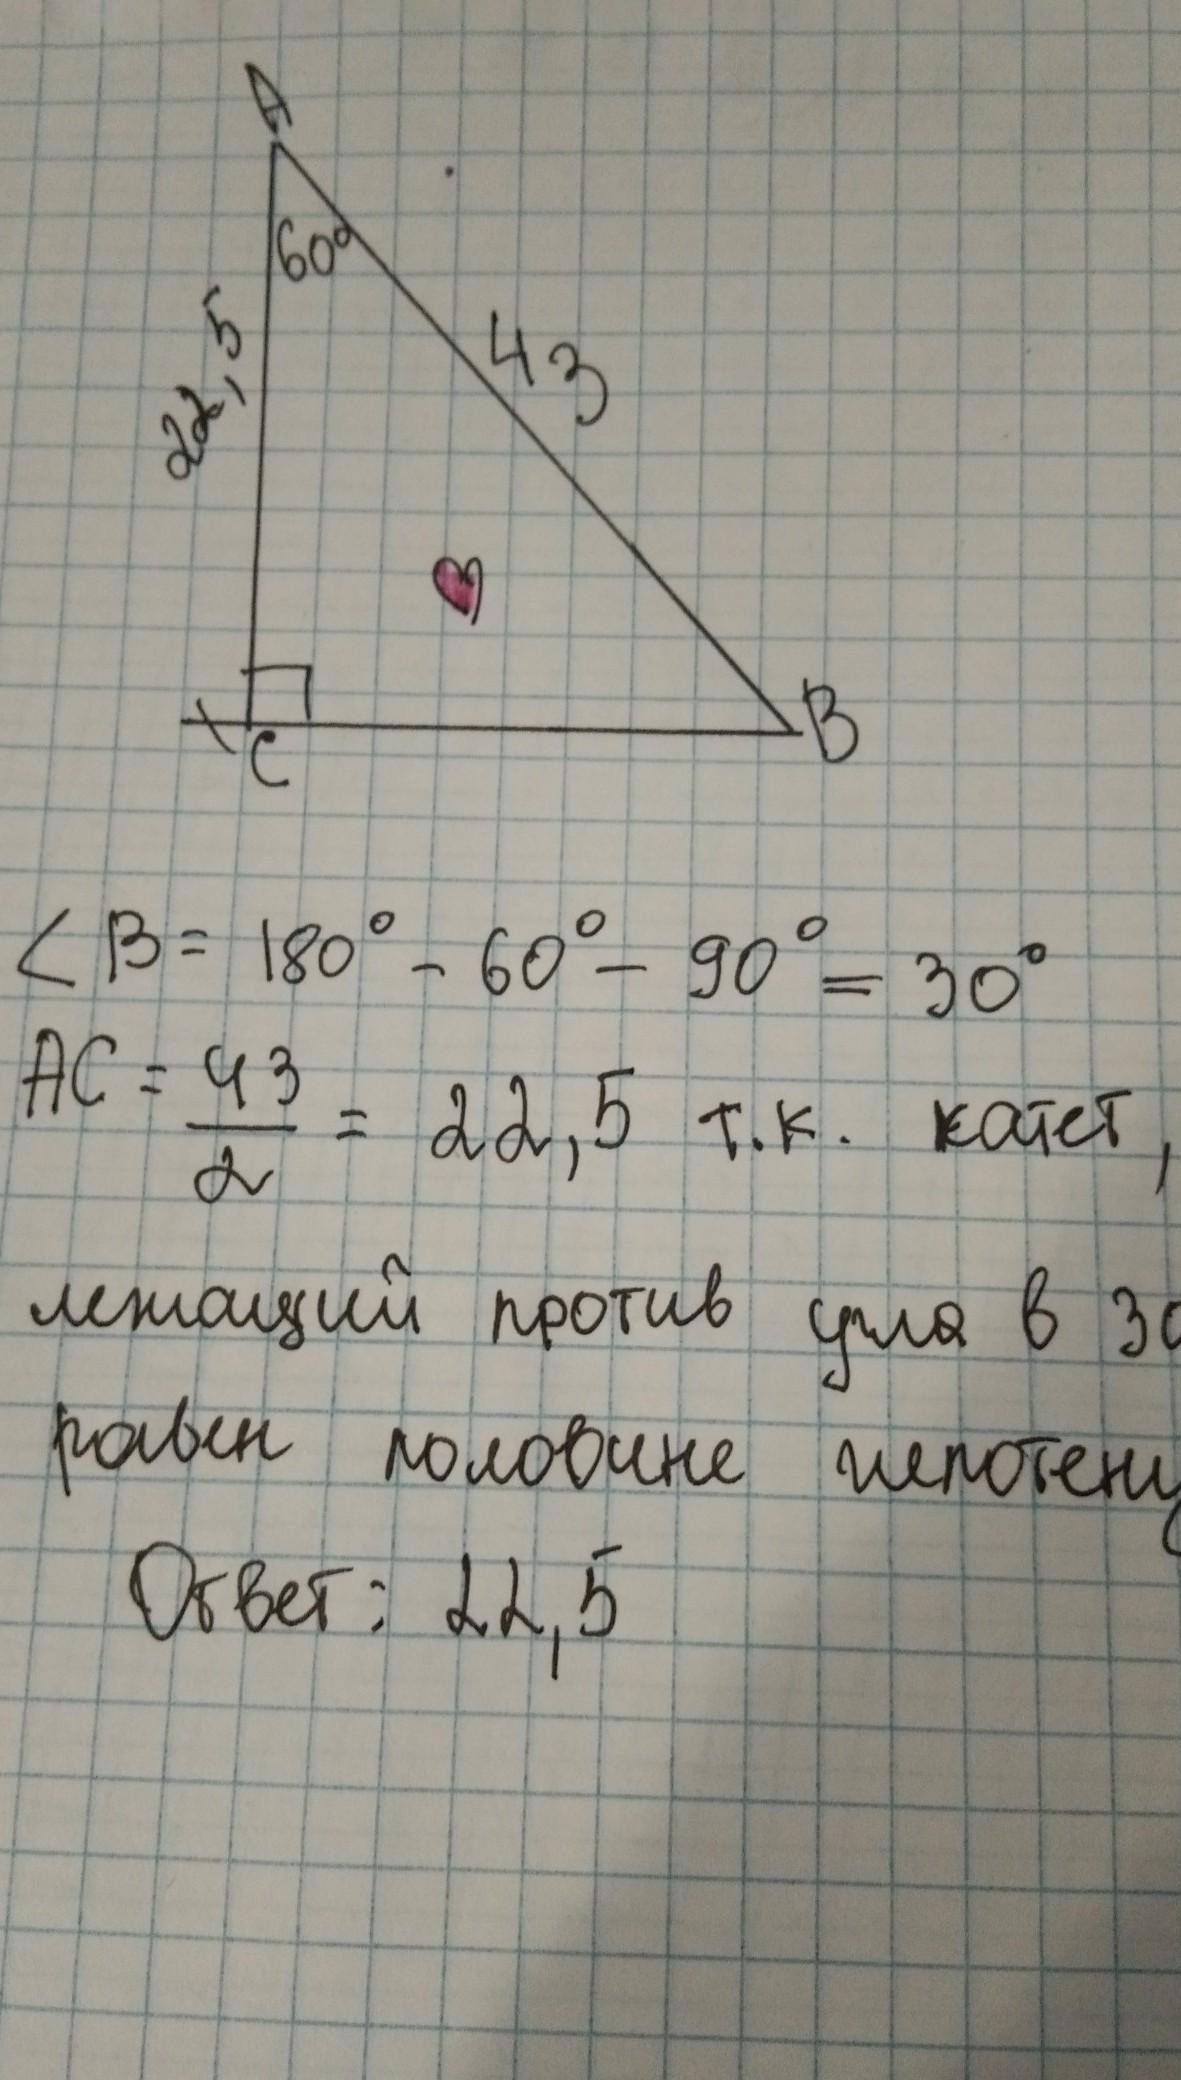 A
60°
22,5
43
C
B
∠B = 180° - 60° - 90° = 30°
AC = 43/2 = 22,5 т.к. катет,
лежащий против угла в 30
равен половине гипотену
Ответ: 22,5